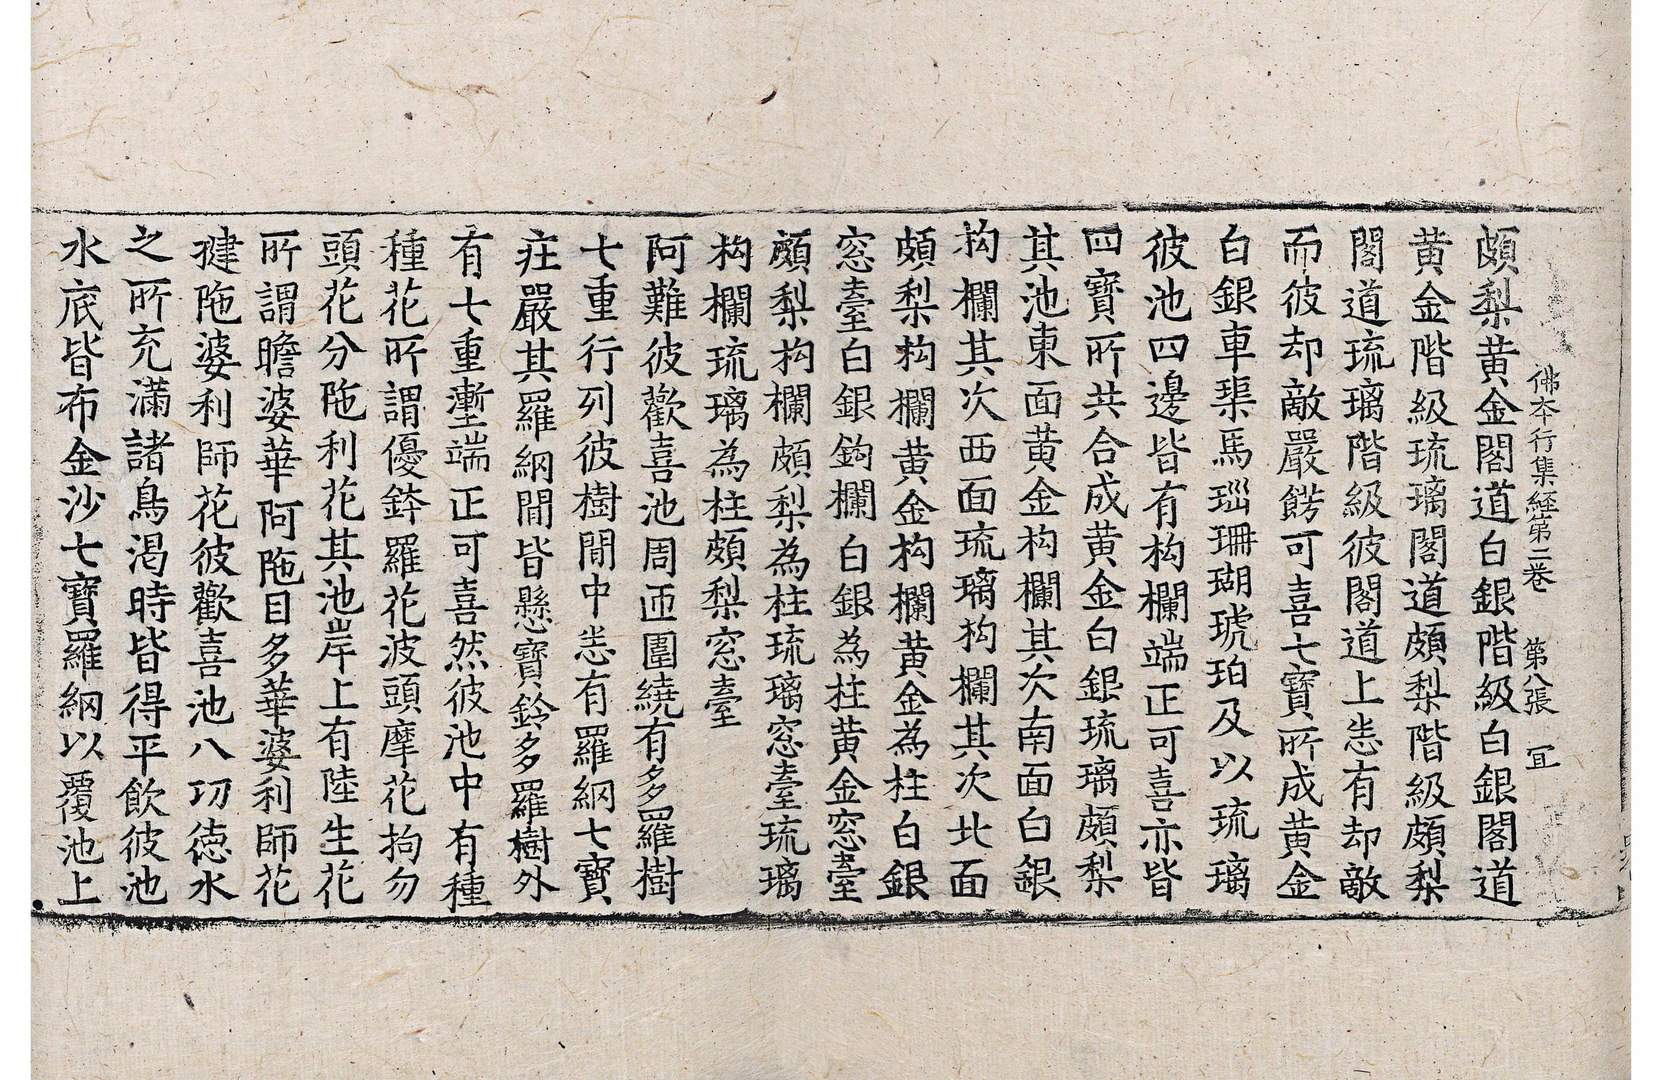 佛本行集經第二卷 第八張 冝
頗梨黃金閣道白銀階級白銀閣道
黃金階級琉璃閣道頗梨階級頗梨
閣道琉璃階級彼閣道上悉有却敵
而彼却敵嚴餝可喜七寶所成黃金
白銀車𤦲馬瑙珊瑚琥珀及以琉璃
彼池四邊皆有构欄端正可喜亦皆
四寶所共合成黃金白銀琉璃頗梨
其池東面黃金构欄其次南面白銀
构欄其次西面琉璃构欄其次北面
頗梨构欄黃金构欄黃金為柱白銀
窓臺白銀鈎欄白銀為柱黃金窓臺
頗梨构欄頗梨為柱琉璃窓臺琉璃
构欄琉璃為柱頗梨窓臺
阿難彼歡喜池周迊圍繞有多羅樹
七重行列彼樹間中悉有羅網七寶
莊嚴其羅網間皆懸寶鈴多羅樹外
有七重壍端正可喜然彼池中有種
種花所謂優鉢羅花波頭摩花拘勿
頭花分陁利花其池岸上有陸生花
所謂瞻婆華阿陁目多華婆利師花
揵陁婆利師花彼歡喜池八功徳水
之所充滿諸鳥渴時皆得平飲彼池
水底皆布金沙七寶羅網以覆池上